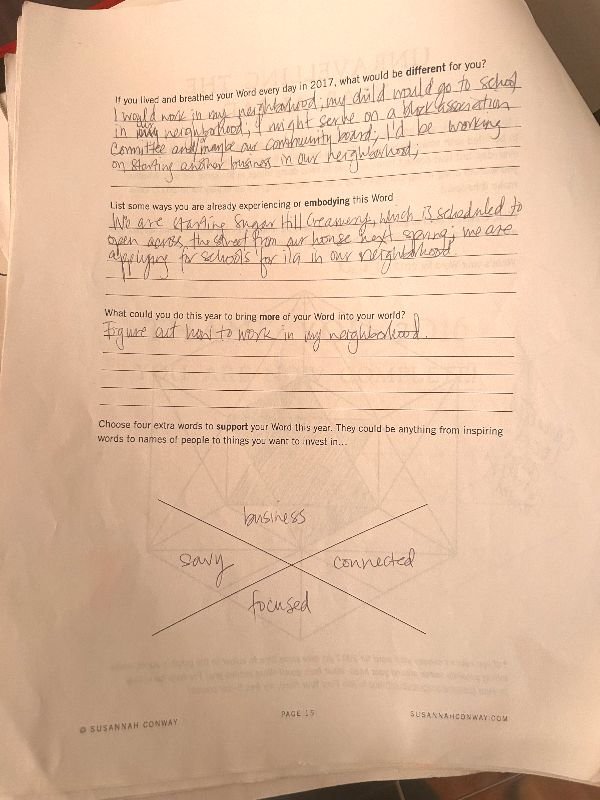 If you lived and breathed your Word every day in 2017, what would be different for you?
I would work in my neighborhood, my child would go to school
in our neighborhood, I might serve on a block association
committee and/maybe our community board, I'd be working
on starting another business in our neighborhood,
List some ways you are already experiencing or embodying this Word
We are starting Sugar Hill Creamery, which is scheduled to
open across the street from our house next spring; we are
applying for schools for in our neighborhood
What could you do this year to bring more of your Word into your world?
Figure out how to work in my neighborhood.
Choose four extra words to support your Word this year. They could be anything from inspiring
words to names of people to things you want to invest in...
business
savy
connected
focused
© SUSANNAH CONWAY
PAGE 15
SUSANNAHCONWAY.COM